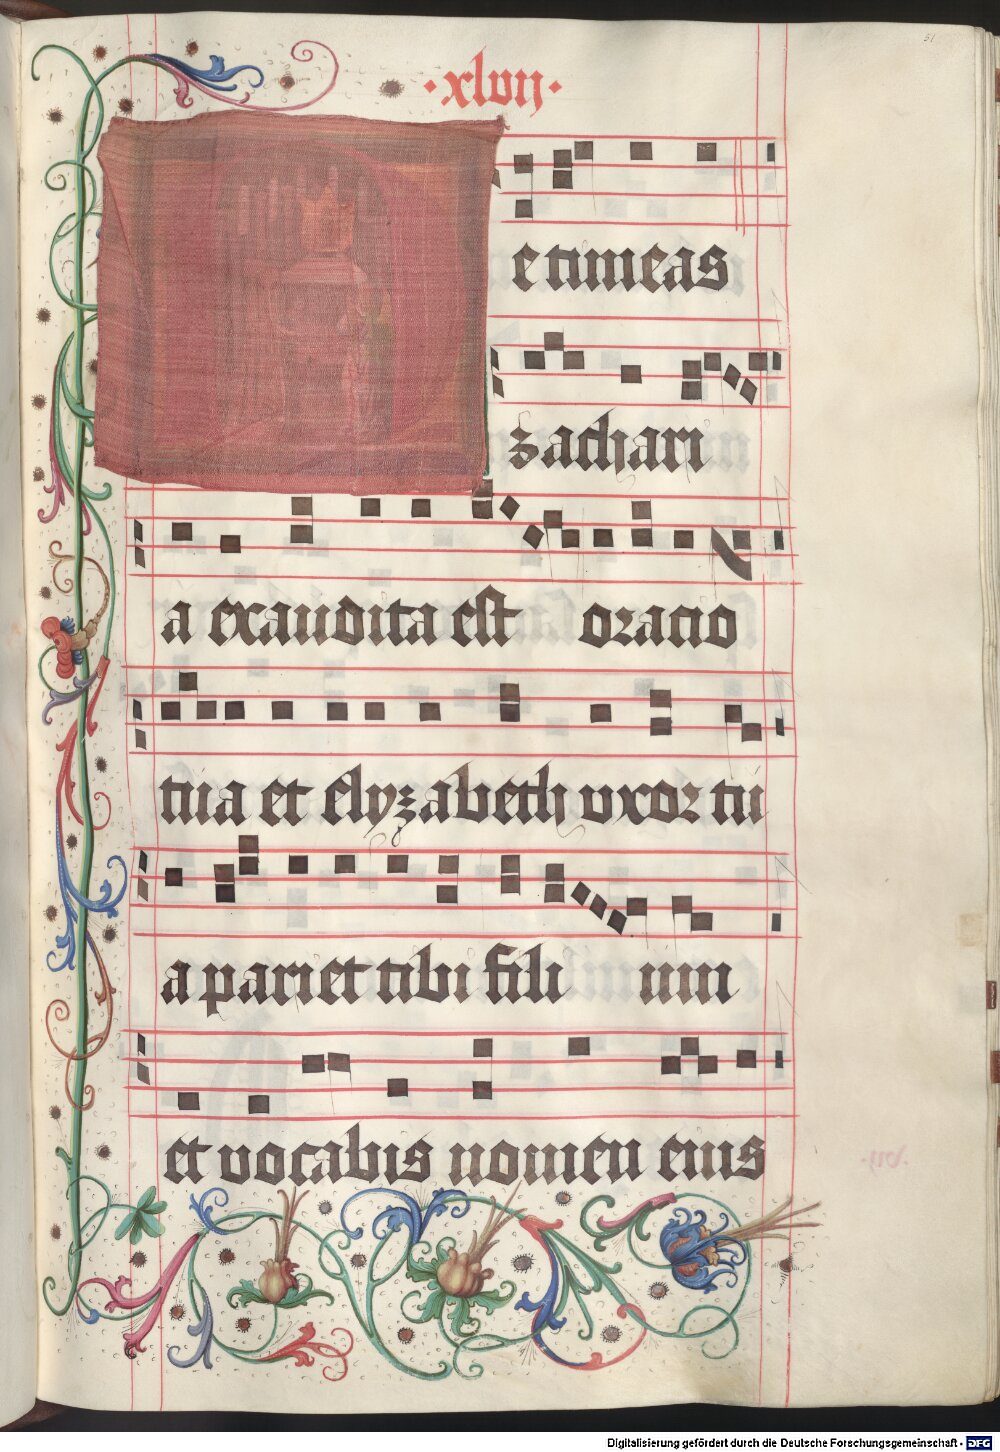 ·xlvij·
51
e timeas
zachari
a exaudita est oracio
tua et elyzabeth vxor tu
a pariet tibi fili um
et vocabis nomen eius
Digitalisierung gefördert durch die Deutsche Forschungsgemeinschaft - DFG